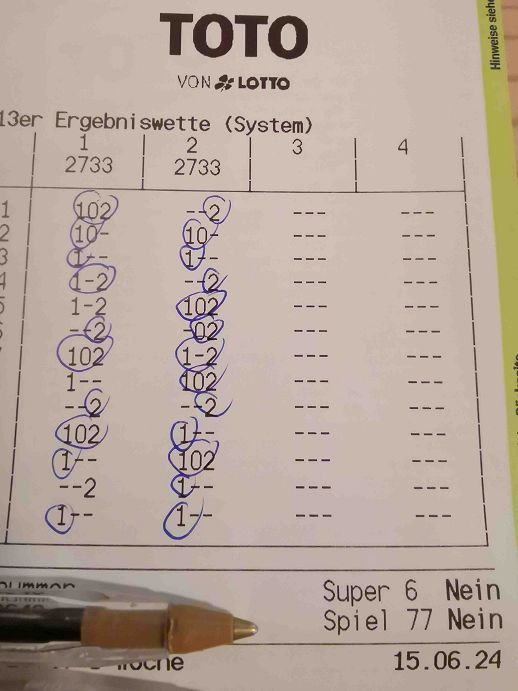 TOTO
VON LOTTO
Hinweise siehe
13er Ergebniswette (System)
1 2 3 4
2733 2733
1 102 --2 --- ---
2 10- 10- --- ---
3 1-- 1-- --- ---
4 1-2 --2 --- ---
5 1-2 102 --- ---
--2 -02 --- ---
102 1-2 --- ---
1-- 102 --- ---
--2 --2 --- ---
102 1-- --- ---
1-- 102 --- ---
--2 1-- --- ---
1-- 1-- --- ---
Super 6 Nein
Spiel 77 Nein
15.06.24